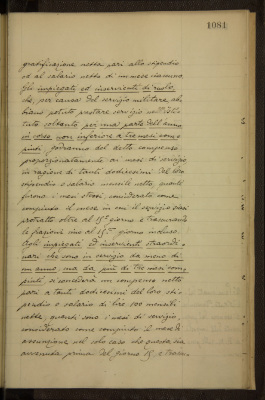 1081
gratificazione netta pari allo stipendio
od al salario netto di un mese ciascuno.
Gli impiegati ed inservienti di ruolo,
che, per causa del servizio militare, ab-
biano potuto prestare servizio nell'Isti-
tuto soltanto per una parte dell'anno
in corso, non inferiore a tre mesi com-
piuti, godranno del detto compenso
proporzionatamente ai mesi di servizio
in ragione di tanti dodicesimi del loro
stipendio o salario mensile netto, quanti
furono i mesi stessi, considerato come
compiuto il mese in cui il servizio siasi
protratto oltre al 15° giorno e trascurando
le frazioni sino al 15° inclusivo.
Agli impiegati ed inservienti straordi-
nari che sono in servizio da meno di
un anno ma da più di tre mesi com-
piuti, si concederà un compenso netto
pari a tanti dodicesimi del loro sti-
pendio o salario di lire 100 mensili
nette, quanti sono i mesi di servizio,
considerato come compiuto il mese di
assunzione nel solo caso che questa sia
avvenuta prima del giorno 15, e trascu-